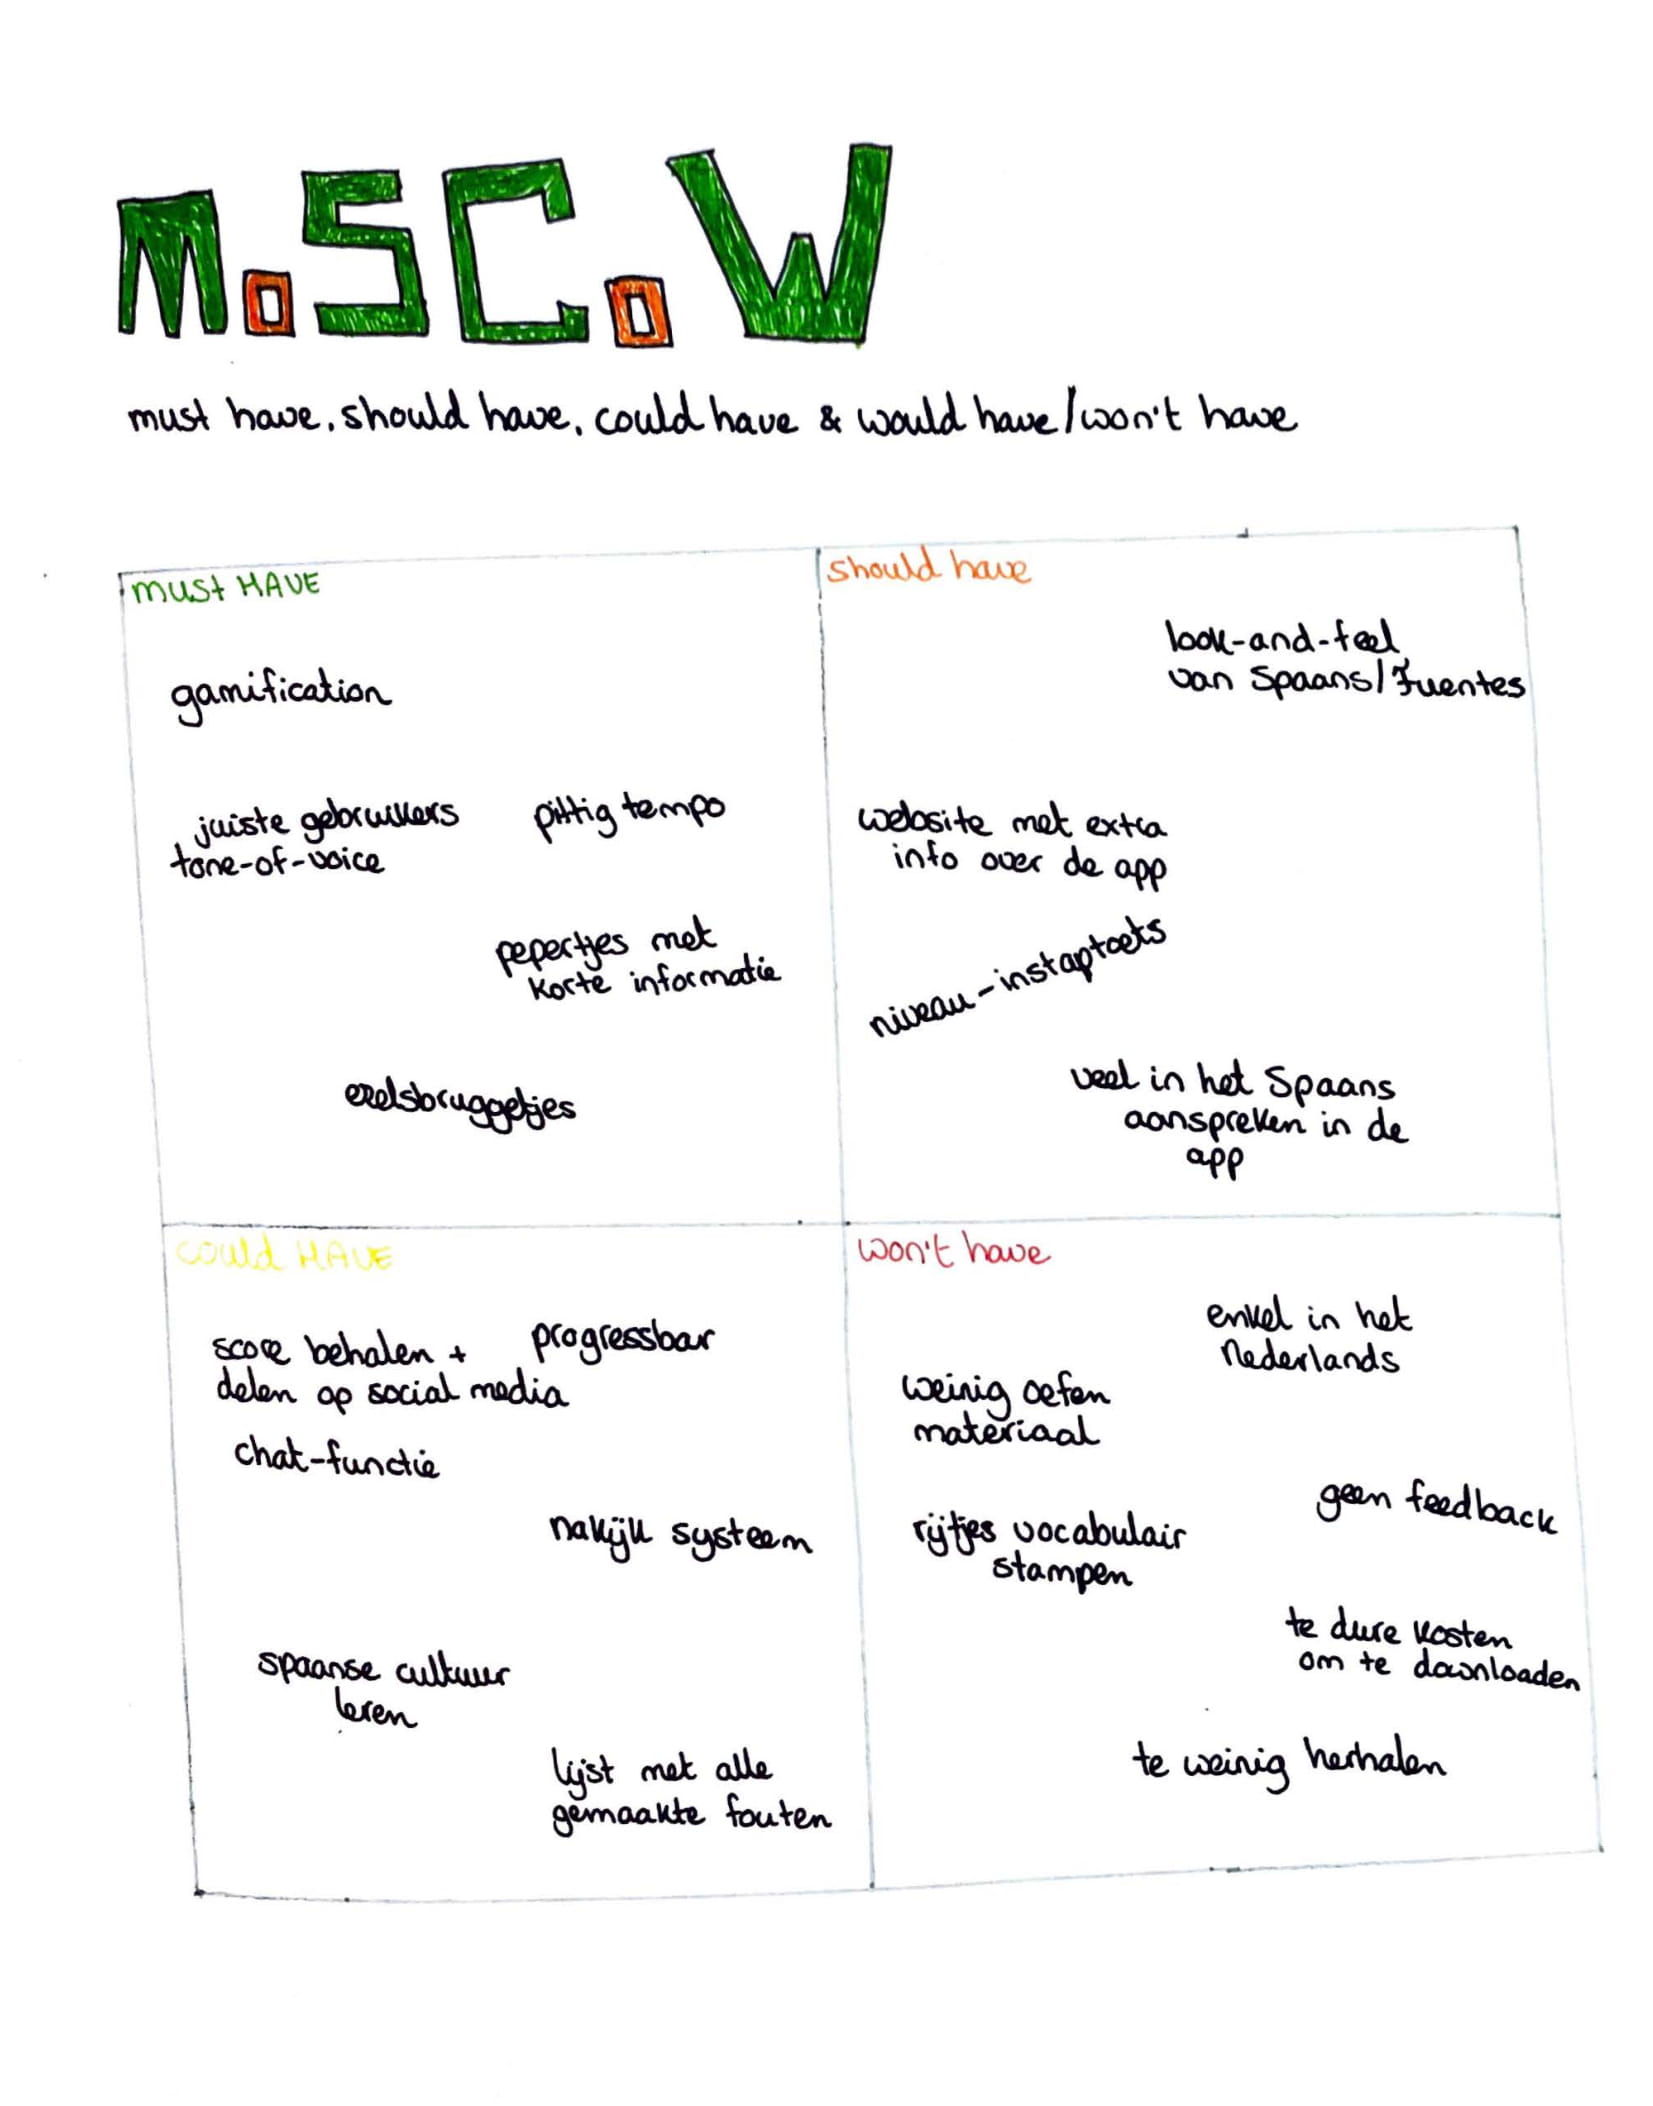 MoSCoW
must have, should have, could have & would have/won't have
must HAVE
gamification
juiste gebruikers
tone-of-voice
pittig tempo
pepertjes met
korte informatie
ezelsbruggetjes
should have
look-and-feel
van Spaans/Fuentes
website met extra
info over de app
niveau-instaptoets
veel in het Spaans
aanspreken in de
app
could HAVE
score behalen +
delen op social media
progressbar
chat-functie
nakijk systeem
spaanse cultuur
leren
lijst met alle
gemaakte fouten
won't have
enkel in het
Nederlands
weinig oefen
materiaal
geen feedback
rijtjes vocabulair
stampen
te dure kosten
om te downloaden
te weinig herhalen